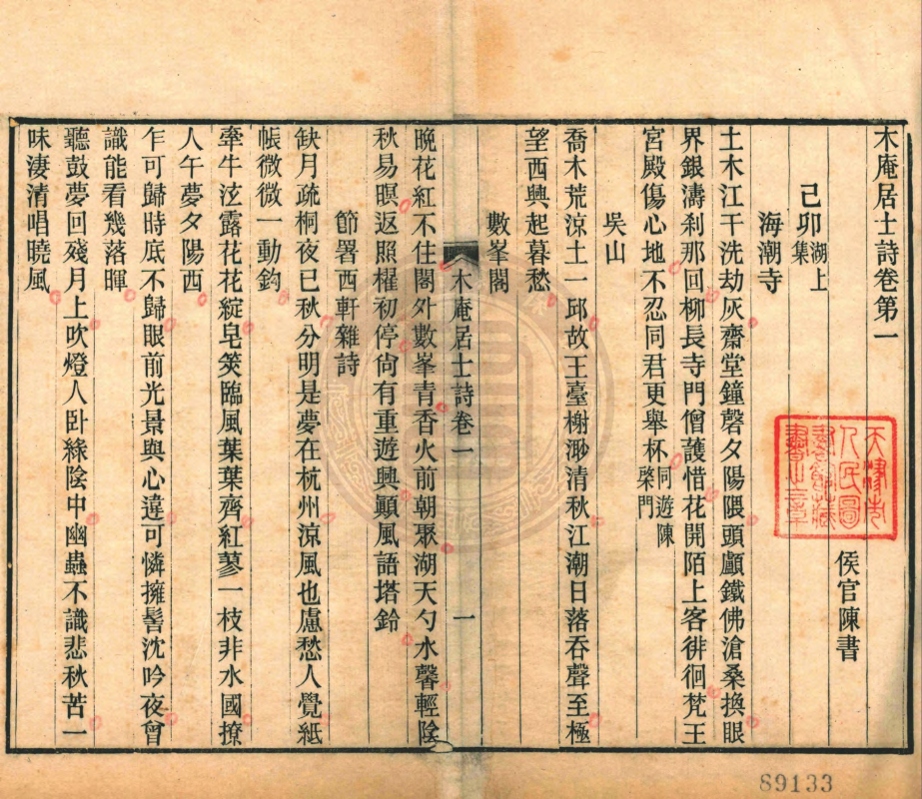 木庵居士詩卷第一
侯官陳書
己卯湖上集
海潮寺
土木江干洗劫灰齋堂鐘磬夕陽隈頭顱鐵佛滄桑換眼
界銀濤刹那回柳長寺門僧護惜花開陌上客徘徊梵王
宮殿傷心地不忍同君更舉杯同遊陳棨門
吳山
喬木荒涼土一邱故王臺榭渺清秋江潮日落吞聲至極
望西興起暮愁
數峯閣
晚花紅不住閣外數峯青香火前朝聚湖天勺水馨輕陰
秋易暝返照櫂初停尙有重遊興顚風語塔鈴
節署西軒雜詩
缺月疏桐夜已秋分明是夢在杭州涼風也慮愁人覺紙
帳微微一動鈎
牽牛泫露花花綻皂莢臨風葉葉齊紅蓼一枝非水國撩
人午夢夕陽西
乍可歸時底不歸眼前光景與心違可憐擁髻沈吟夜曾
識能看幾落暉
聽鼓夢回殘月上吹燈人卧綠陰中幽蟲不識悲秋苦一
味淒清唱曉風
木庵居士詩卷一
一
天津市人民圖書館藏書之章
89133